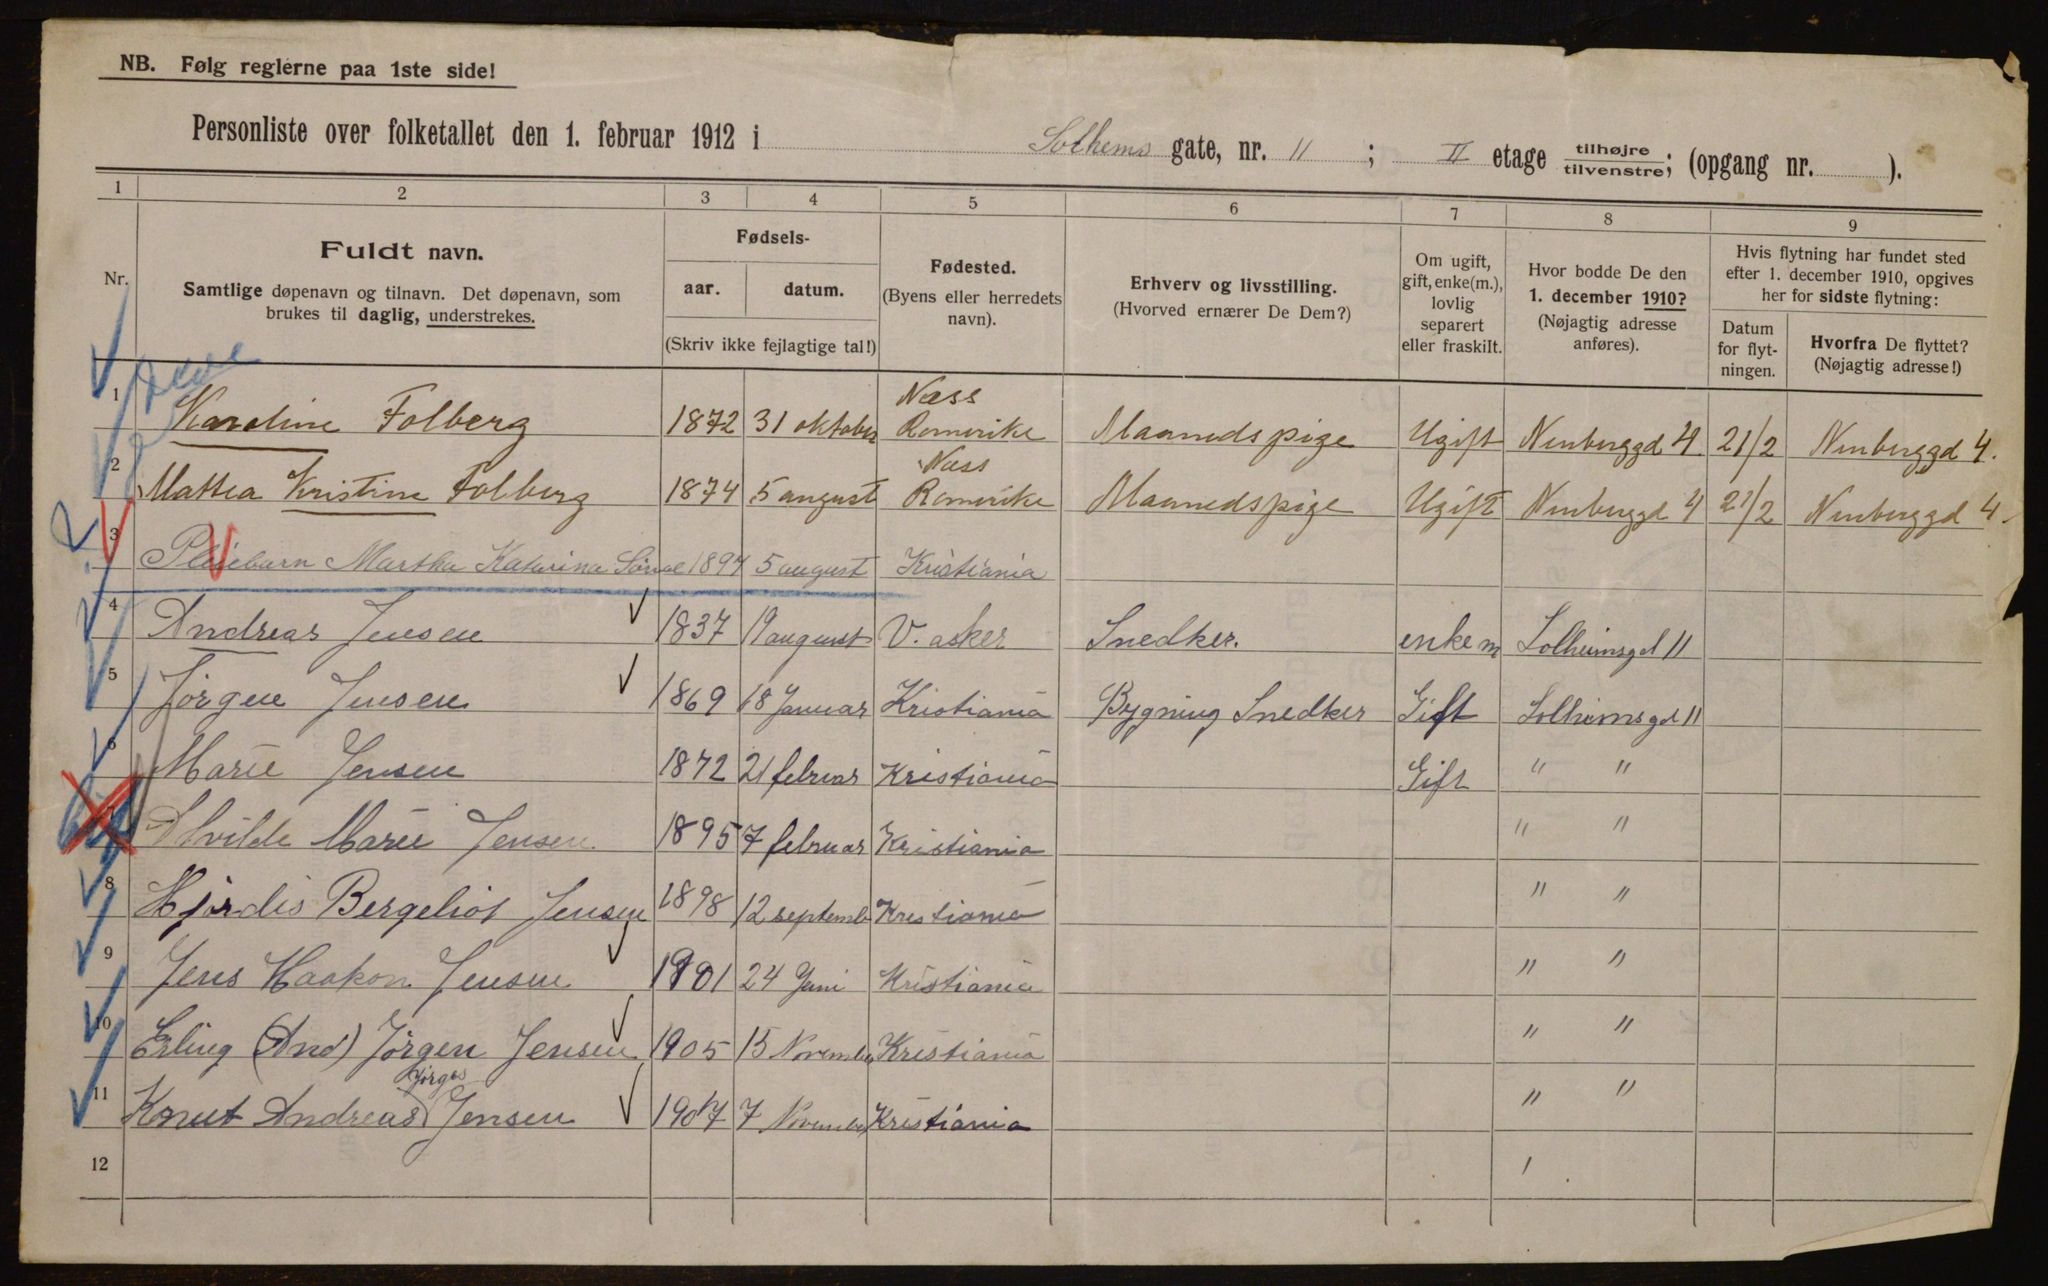 NB. Følg reglerne paa 1ste side!
Personliste over folketallet den 1. februar 1912 i Solhems gate, nr. 11 ; II etage tilhøjre/tilvenstre; (opgang nr. ).
1 2 3 4 5 6 7 8 9
Nr.
Fuldt navn.
Samtlige døpenavn og tilnavn. Det døpenavn, som
brukes til daglig, understrekes.
Fødsels-
aar. datum.
(Skriv ikke fejlagtige tal!)
Fødested.
(Byens eller herredets
navn).
Erhverv og livsstilling.
(Hvorved ernærer De Dem?)
Om ugift,
gift, enke(m.),
lovlig
separert
eller fraskilt.
Hvor bodde De den
1. december 1910?
(Nøjagtig adresse
anføres).
Hvis flytning har fundet sted
efter 1. december 1910, opgives
her for sidste flytning:
Datum
for flyt-
ningen.
Hvorfra De flyttet?
(Nøjagtig adresse!)
1 Karoline Folberg 1872 31 oktober Næss Romerike Maanedspige Ugift Nenberggd 4 21/2 Nenberggd 4.
2 Mattea Kristine Folberg 1874 5 august Næss Romerike Maanedspige Ugift Nenberggd 4 21/2 Nenberggd 4.
3 Pleiebarn Martha Katarina 1897 5 august Kristiania
4 Andreas Jensen 1837 19 august V. asker Snedker. enkem Solheimsgd 11
5 Jørgen Jensen 1869 18 Januar Kristiania Bygning Snedker Gift Solheimsgd 11
6 Marie Jensen 1872 21 februar Kristiania Gift " "
7 Alvilde Marie Jensen 1895 7 februar Kristiania " "
8 Hjørdis Bergeliot Jensen 1898 12 septemb Kristiania " "
9 Jens Haakon Jensen 1901 24 Juni Kristiania " "
10 Erling (And) Jörgen Jensen 1905 15 November Kristiania " "
Jørges
11 Knut Andreas) Jensen 1907 7 November Kristiania " "
12 "